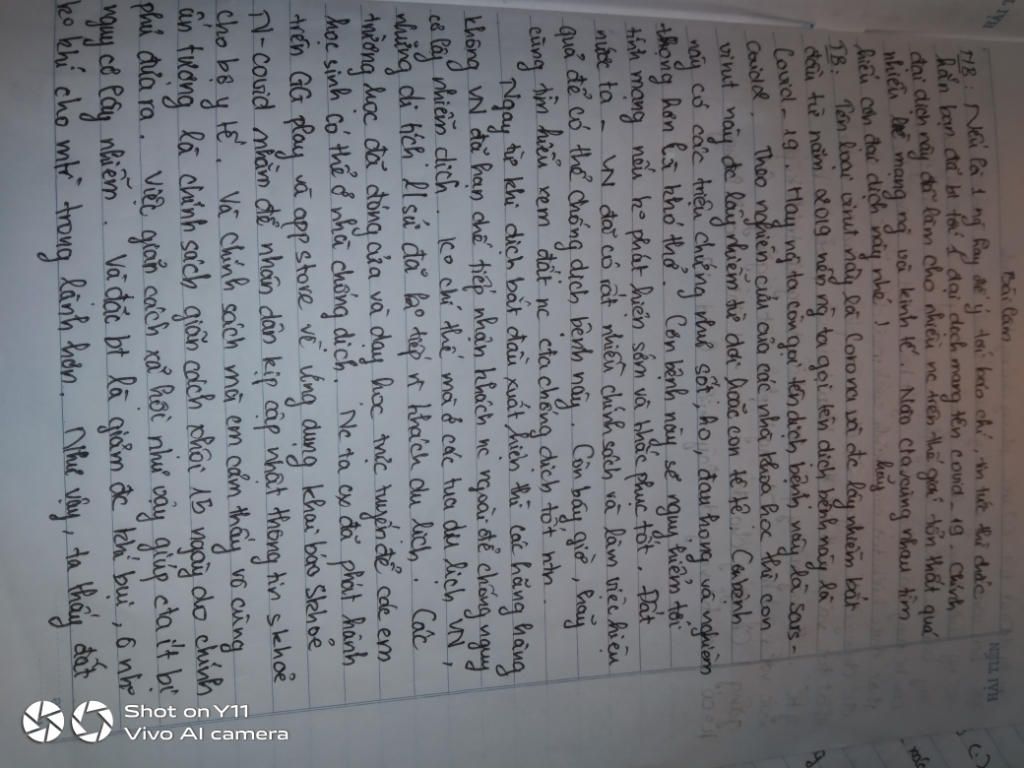 Bài làm
MB: Nếu là 1 ng hay để ý tới báo chí, tin tức thì chắc
hẳn bạn đã bt tới 1 đại dịch mang tên covid-19. Chính
đại dịch này đã làm cho nhiều nc trên thế giới tổn thất quá
nhiều về mạng ng và kinh tế. Nào cta cùng nhau tìm
hiểu cơn đại dịch này nhé! hãy
TB: Tên loài virut này là Corona và đc lây nhiễm bắt
đầu từ năm 2019 nên ng ta gọi tên dịch bệnh này là
Covid-19. Hay ng ta còn gọi tên dịch bệnh này là sars-
covid2. Theo nghiên cứu của các nhà khoa học thì con
virut này đc lây nhiễm từ dơi hoặc con tê tê. Cănbệnh
này có các triệu chứng như sốt, ho, đau họng và nghiêm
trọng hơn là khó thở. Căn bệnh này sẽ nguy hiểm tới
tính mạng nếu ko phát hiện sớm và khắc phục tốt. Đất
nước ta - VN đã có rất nhiều chính sách và làm việc hiệu
quả để có thể chống dịch bệnh này. Còn bây giờ, hãy
cùng tìm hiểu xem đất nc cta chống dịch tốt ntn.
Ngay từ khi dịch bắt đầu xuất hiện thì các hãng hàng
không VN đã hạn chế tiếp nhận khách nc ngoài để chống nguy
cơ lây nhiễm dịch. Ko chỉ thế mà ở các tua du lịch VN,
những di tích lịsử đã ko tiếp n khách du lịch. Các
trường học đã đóng cửa và dạy học trực tuyến để các em
học sinh có thể ở nhà chống dịch. Nc ta cx đã phát hành
trên GG play và appstore về ứng dụng khai báo Skhoẻ
N-covid nhằm để nhân dân kịp cập nhật thông tin s khoẻ
cho bộ y tế. Và chính sách mà em cảm thấy vô cùng
ấn tượng là chính sách giãn cách xã hội 15 ngày do chính
phủ đưa ra. Việc giãn cách xã hội như vậy giúp cta ít bị
nguy cơ lây nhiễm. Và đặc bt là giảm đc khí bụi, ô nhiễm
ko khí cho mtr trong lành hơn. Như vậy, ta thấy đất